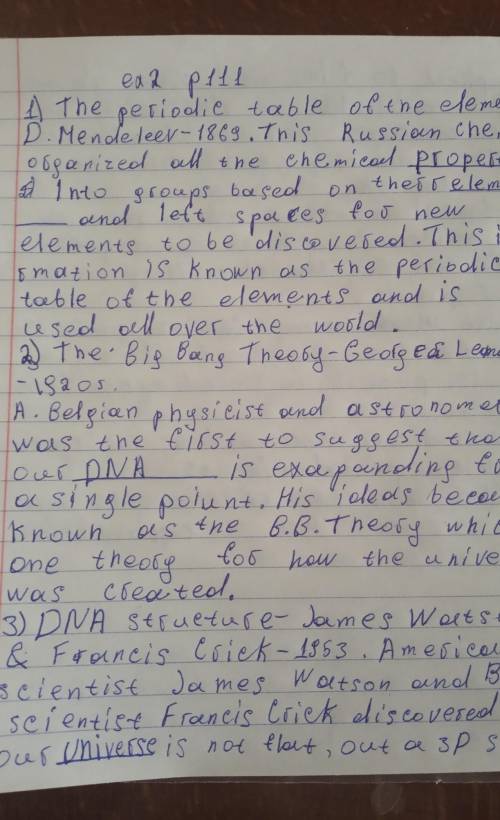 ex2 p111
1) The periodic table of the eleme
D. Mendeleev-1869. This Russian che
organized all the chemical propert
Into groups based on their elem
____ and left spaces for new
elements to be discovered. This i
rmation is known as the periodic
table of the elements and is
used all over the world.
2) The Big Bang Theory-Georges Lema
-1920s.
A. Belgian physicist and astronomer
was the first to suggest tha
our DNA____ is exapanding fo
a single poiunt. His ideas becam
known as the B.B. Theory whic
one theory for how the unive
was created.
3) DNA structure- James Wats
& Francis Crick-1953. America
scientist James Watson and B
scientist Francis Crick discovered
our universe is not flat, out a 3D s